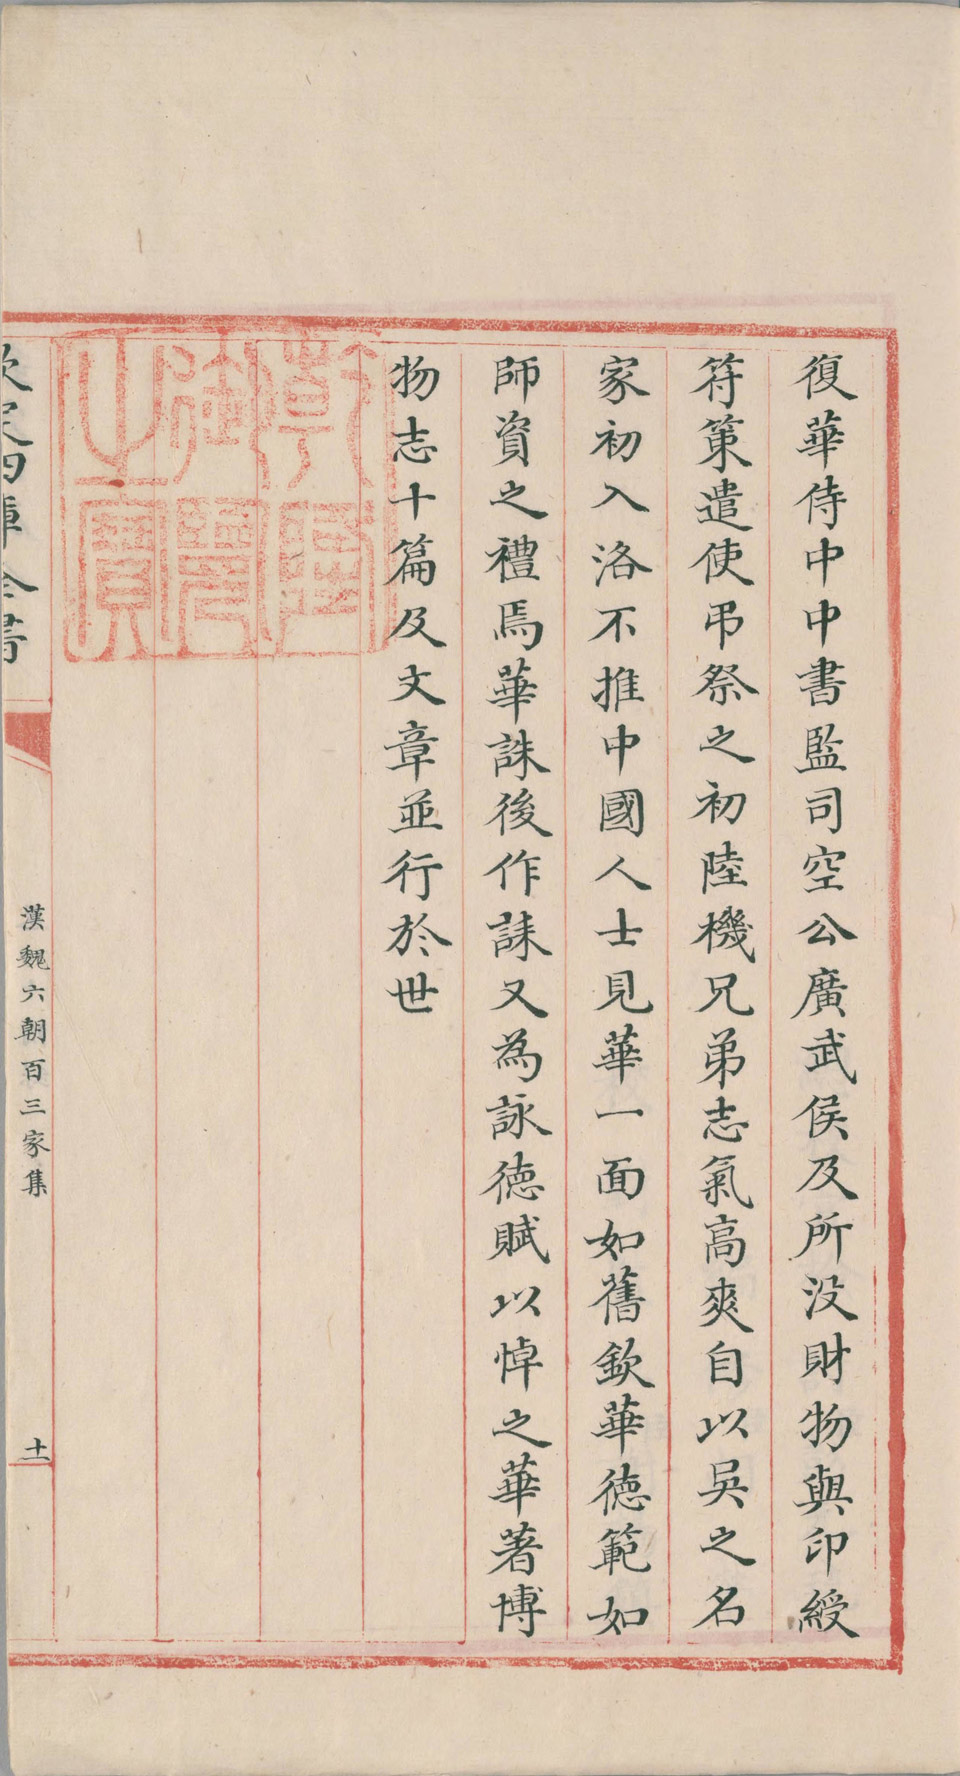 復華侍中中書監司空公廣武侯及所没財物與印綬
符策遣使弔祭之初陸機兄弟志氣高爽自以吳之名
家初入洛不推中國人士見華一面如舊欽華德範如
師資之禮焉華誅後作誄又為詠德賦以悼之華著博
物志十篇及文章並行於世
乾隆御覽之寶
欽定四庫全書
漢魏六朝百三家集
十一